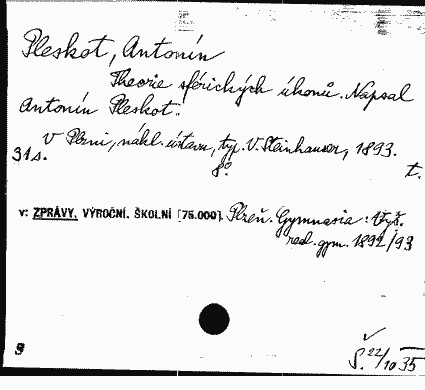 Pleskot, Antonín
Theorie sférických úkonů. Napsal
Antonín Pleskot.
V Plzni, nákl. ústavu, typ. V. Steinhauser, 1893.
31 s. 8°. t.
v: ZPRÁVY. VÝROČNÍ. ŠKOLNÍ [75.000]. Plzeň. Gymnasia: Vyš.
real. gym. 1892/93
9
Š. 22/10 35